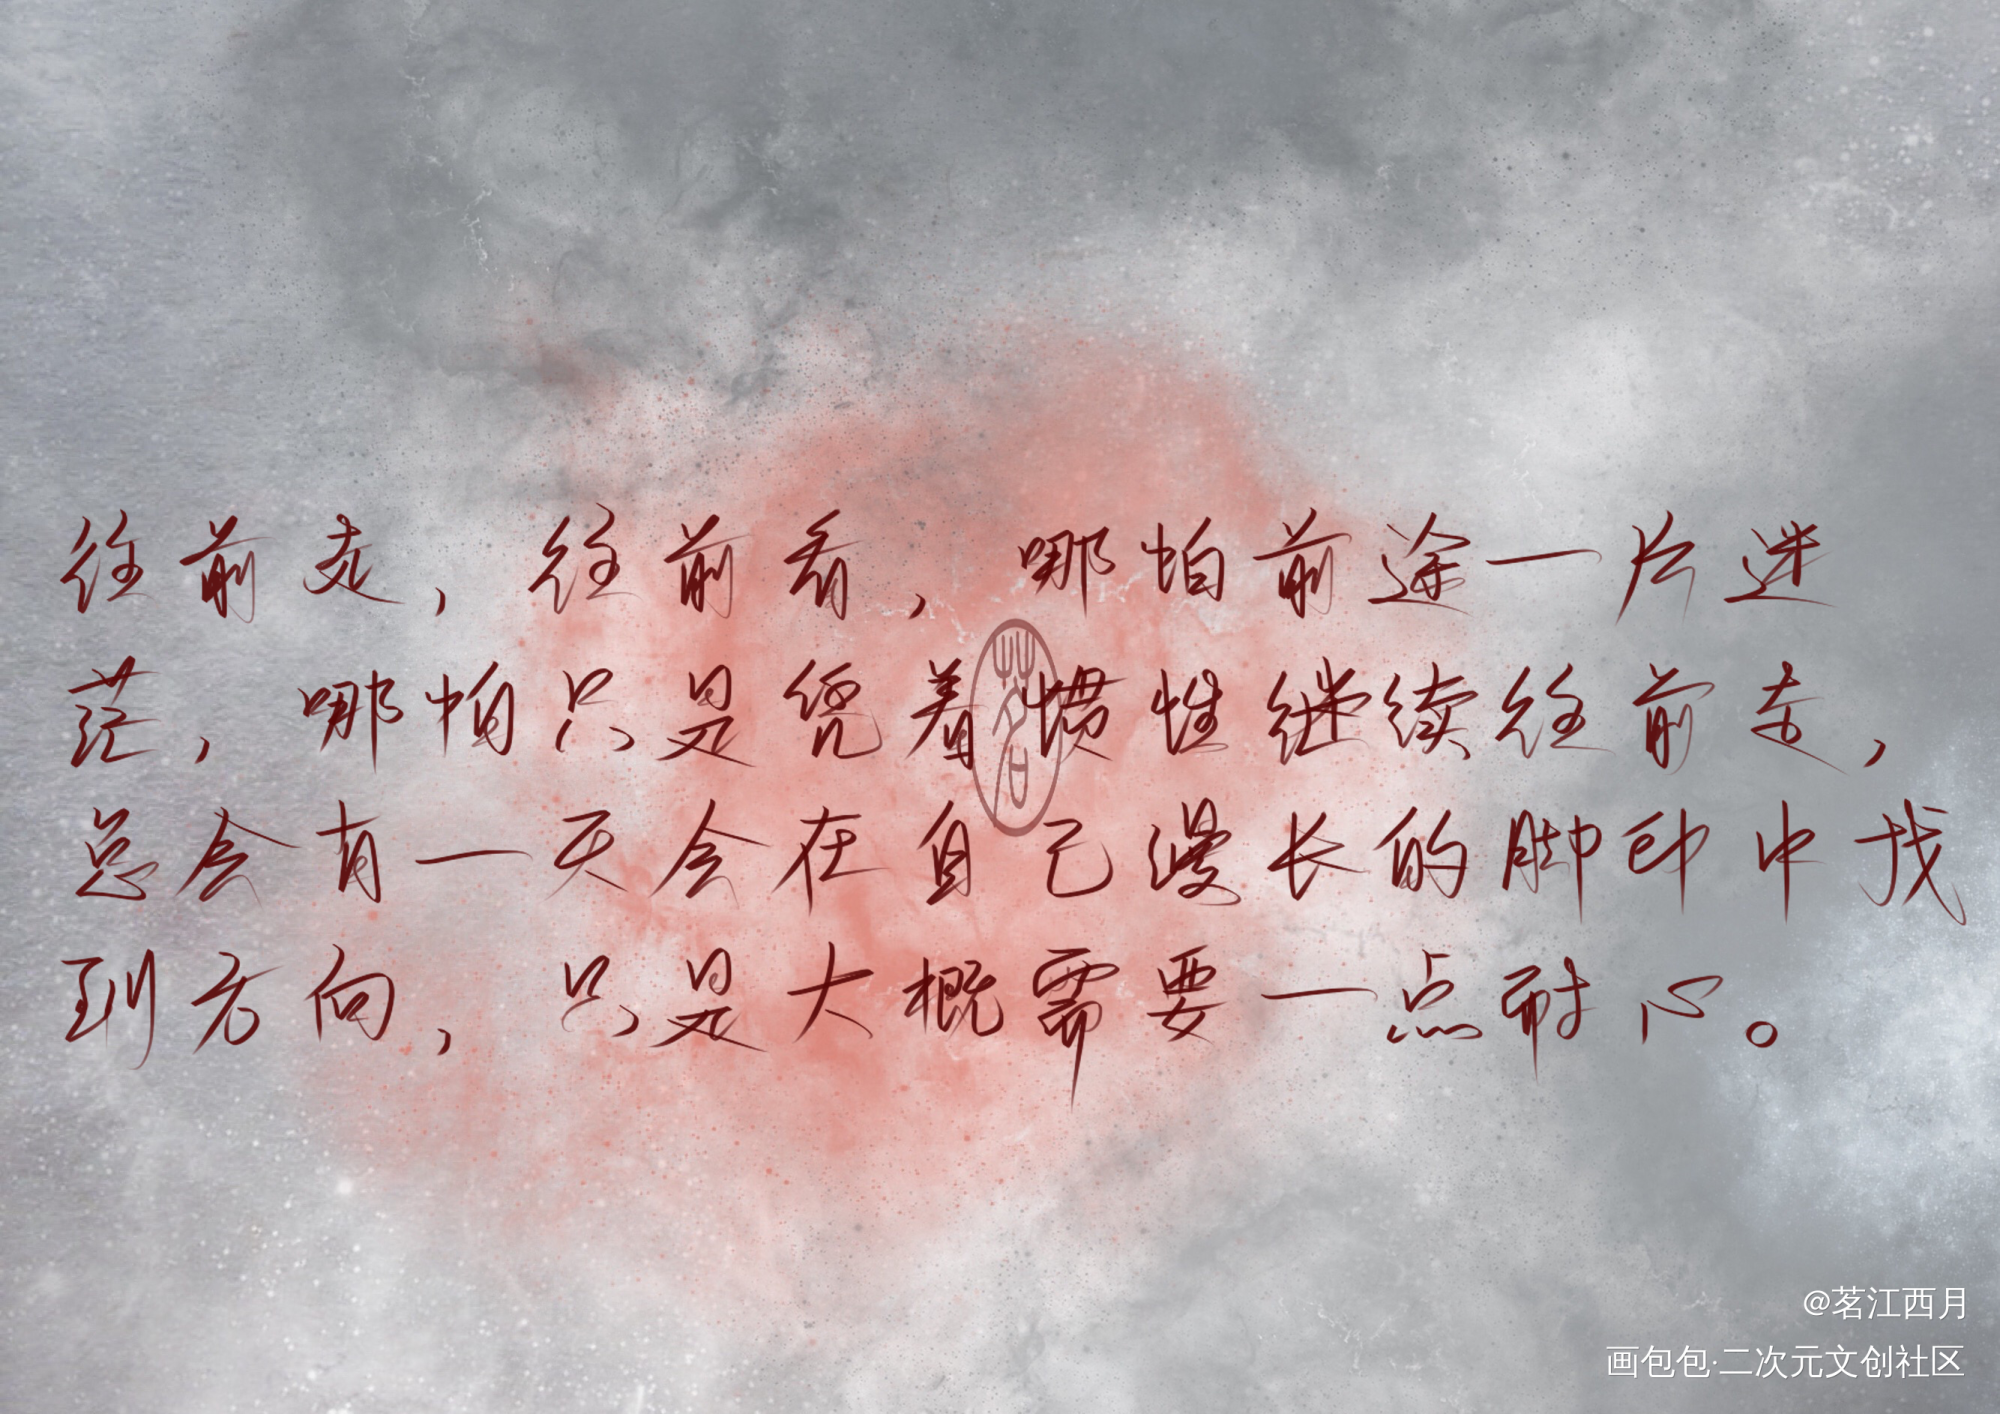 往前走，往前看，哪怕前途一片迷
茫，哪怕只是凭着惯性继续往前走，
总会有一天会在自己漫长的脚印中找
到方向，只是大概需要一点耐心。
茗
@茗江西月
画包包·二次元文创社区